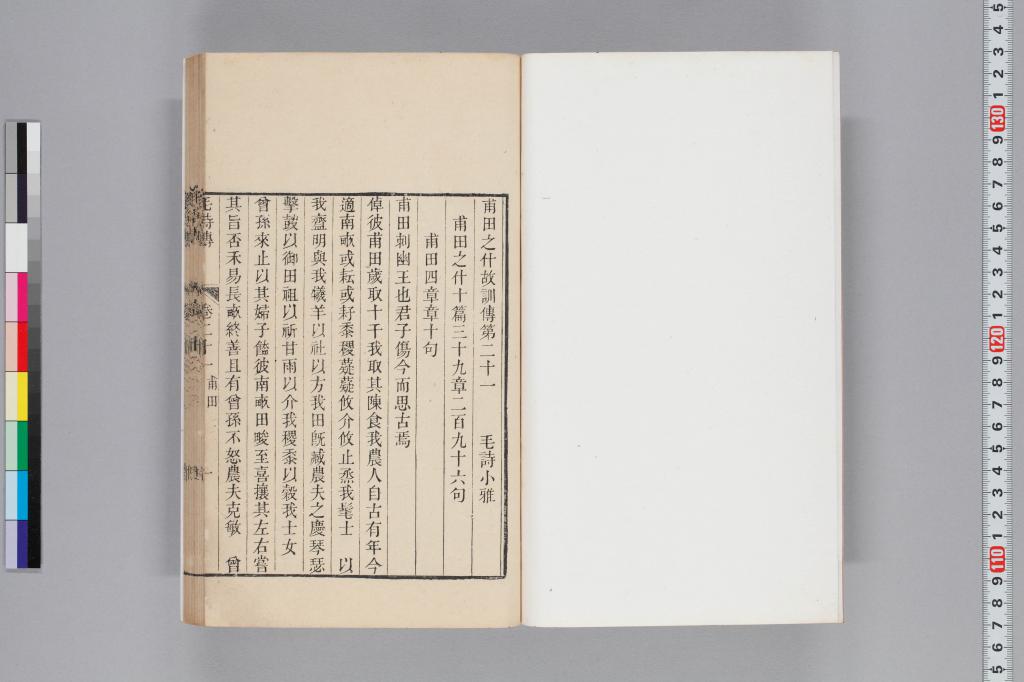 甫田之什故訓傳第二十一　毛詩小雅
甫田之什十篇三十九章二百九十六句
甫田四章章十句
甫田刺幽王也君子傷今而思古焉
倬彼甫田歲取十千我取其陳食我農人自古有年今
適南畝或耘或耔黍稷薿薿攸介攸止烝我髦士　以
我齍明與我犧羊以社以方我田旣臧農夫之慶琴瑟
擊鼓以御田祖以祈甘雨以介我稷黍以穀我士女
曾孫來止以其婦子饁彼南畝田畯至喜攘其左右嘗
其旨否禾易長畝終善且有曾孫不怒農夫克敏　曾
毛詩傳　卷二十一　甫田　一
5
4
3
2
1
130
9
8
7
6
5
4
3
2
1
120
9
8
7
6
5
4
3
2
1
110
9
8
7
6
5